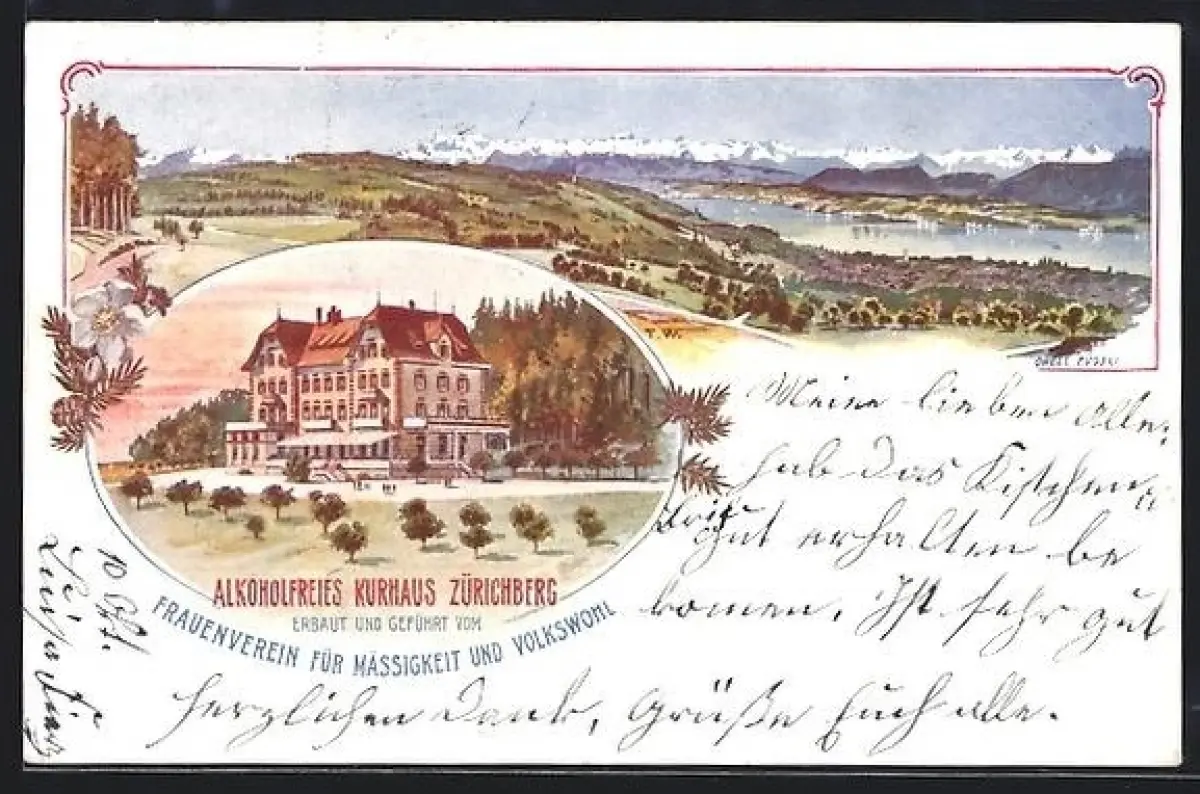 T. W.
ORELL FUSSLI
ALKOHOLFREIES KURHAUS ZÜRICHBERG
ERBAUT UND GEFÜHRT VOM
FRAUENVEREIN FÜR MÄSSIGKEIT UND VOLKSWOHL
Meine lieben alle,
hab das Kistchen
gut erhalten be
komen, Ist sehr gut
herzlichen Dank, Grüße Euch alle.
10